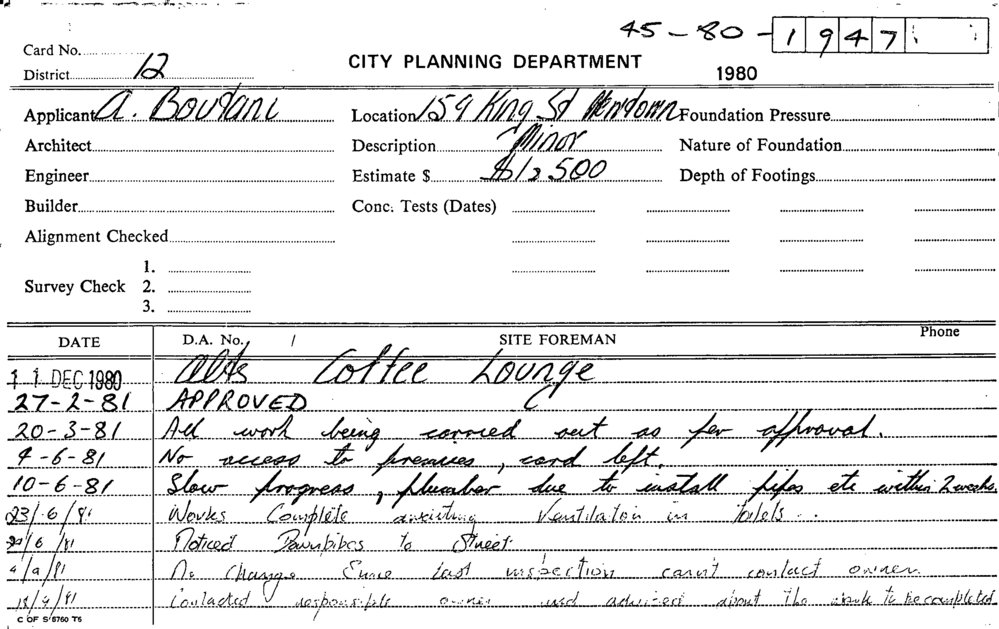 45-80-1947
Card No.
District 12
CITY PLANNING DEPARTMENT
1980
Applicant A. Boudani Location 159 King St Newtown Foundation Pressure
Architect Description Minor Nature of Foundation
Engineer Estimate $ $12500 Depth of Footings
Builder Conc. Tests (Dates)
Alignment Checked
1.
Survey Check 2.
3.
DATE D.A. No. / SITE FOREMAN Phone
11 DEC 1980 Alts Coffee Lounge
27-2-81 APPROVED
20-3-81 All work being carried out as per approval.
4-6-81 No access to premises, card left.
10-6-81 Slow progress, plumber due to install pipes etc within 2 weeks.
23/6/81 Works Complete awaiting Ventilation in toilets..
/6/81 Noticed Downpipes to Street
4/9/81 No Change Since last inspection can't contact owner.
/9/81 Contacted responsible owner and advised about the work to be completed
C OF S 8760 T5